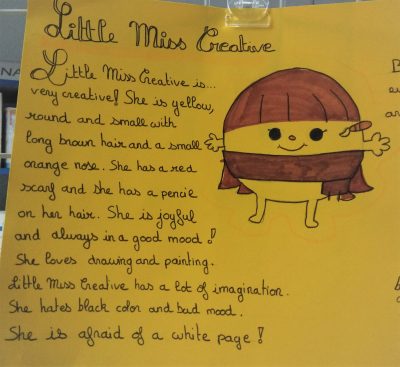 Little Miss Creative
Little Miss Creative is...
very creative! She is yellow,
round and small with
long brown hair and a small
orange nose. She has a red
scarf and she has a pencil
on her hair. She is joyful
and always in a good mood!
She loves drawing and painting.
Little Miss Creative has a lot of imagination.
She hates black color and bad mood.
She is afraid of a white page!